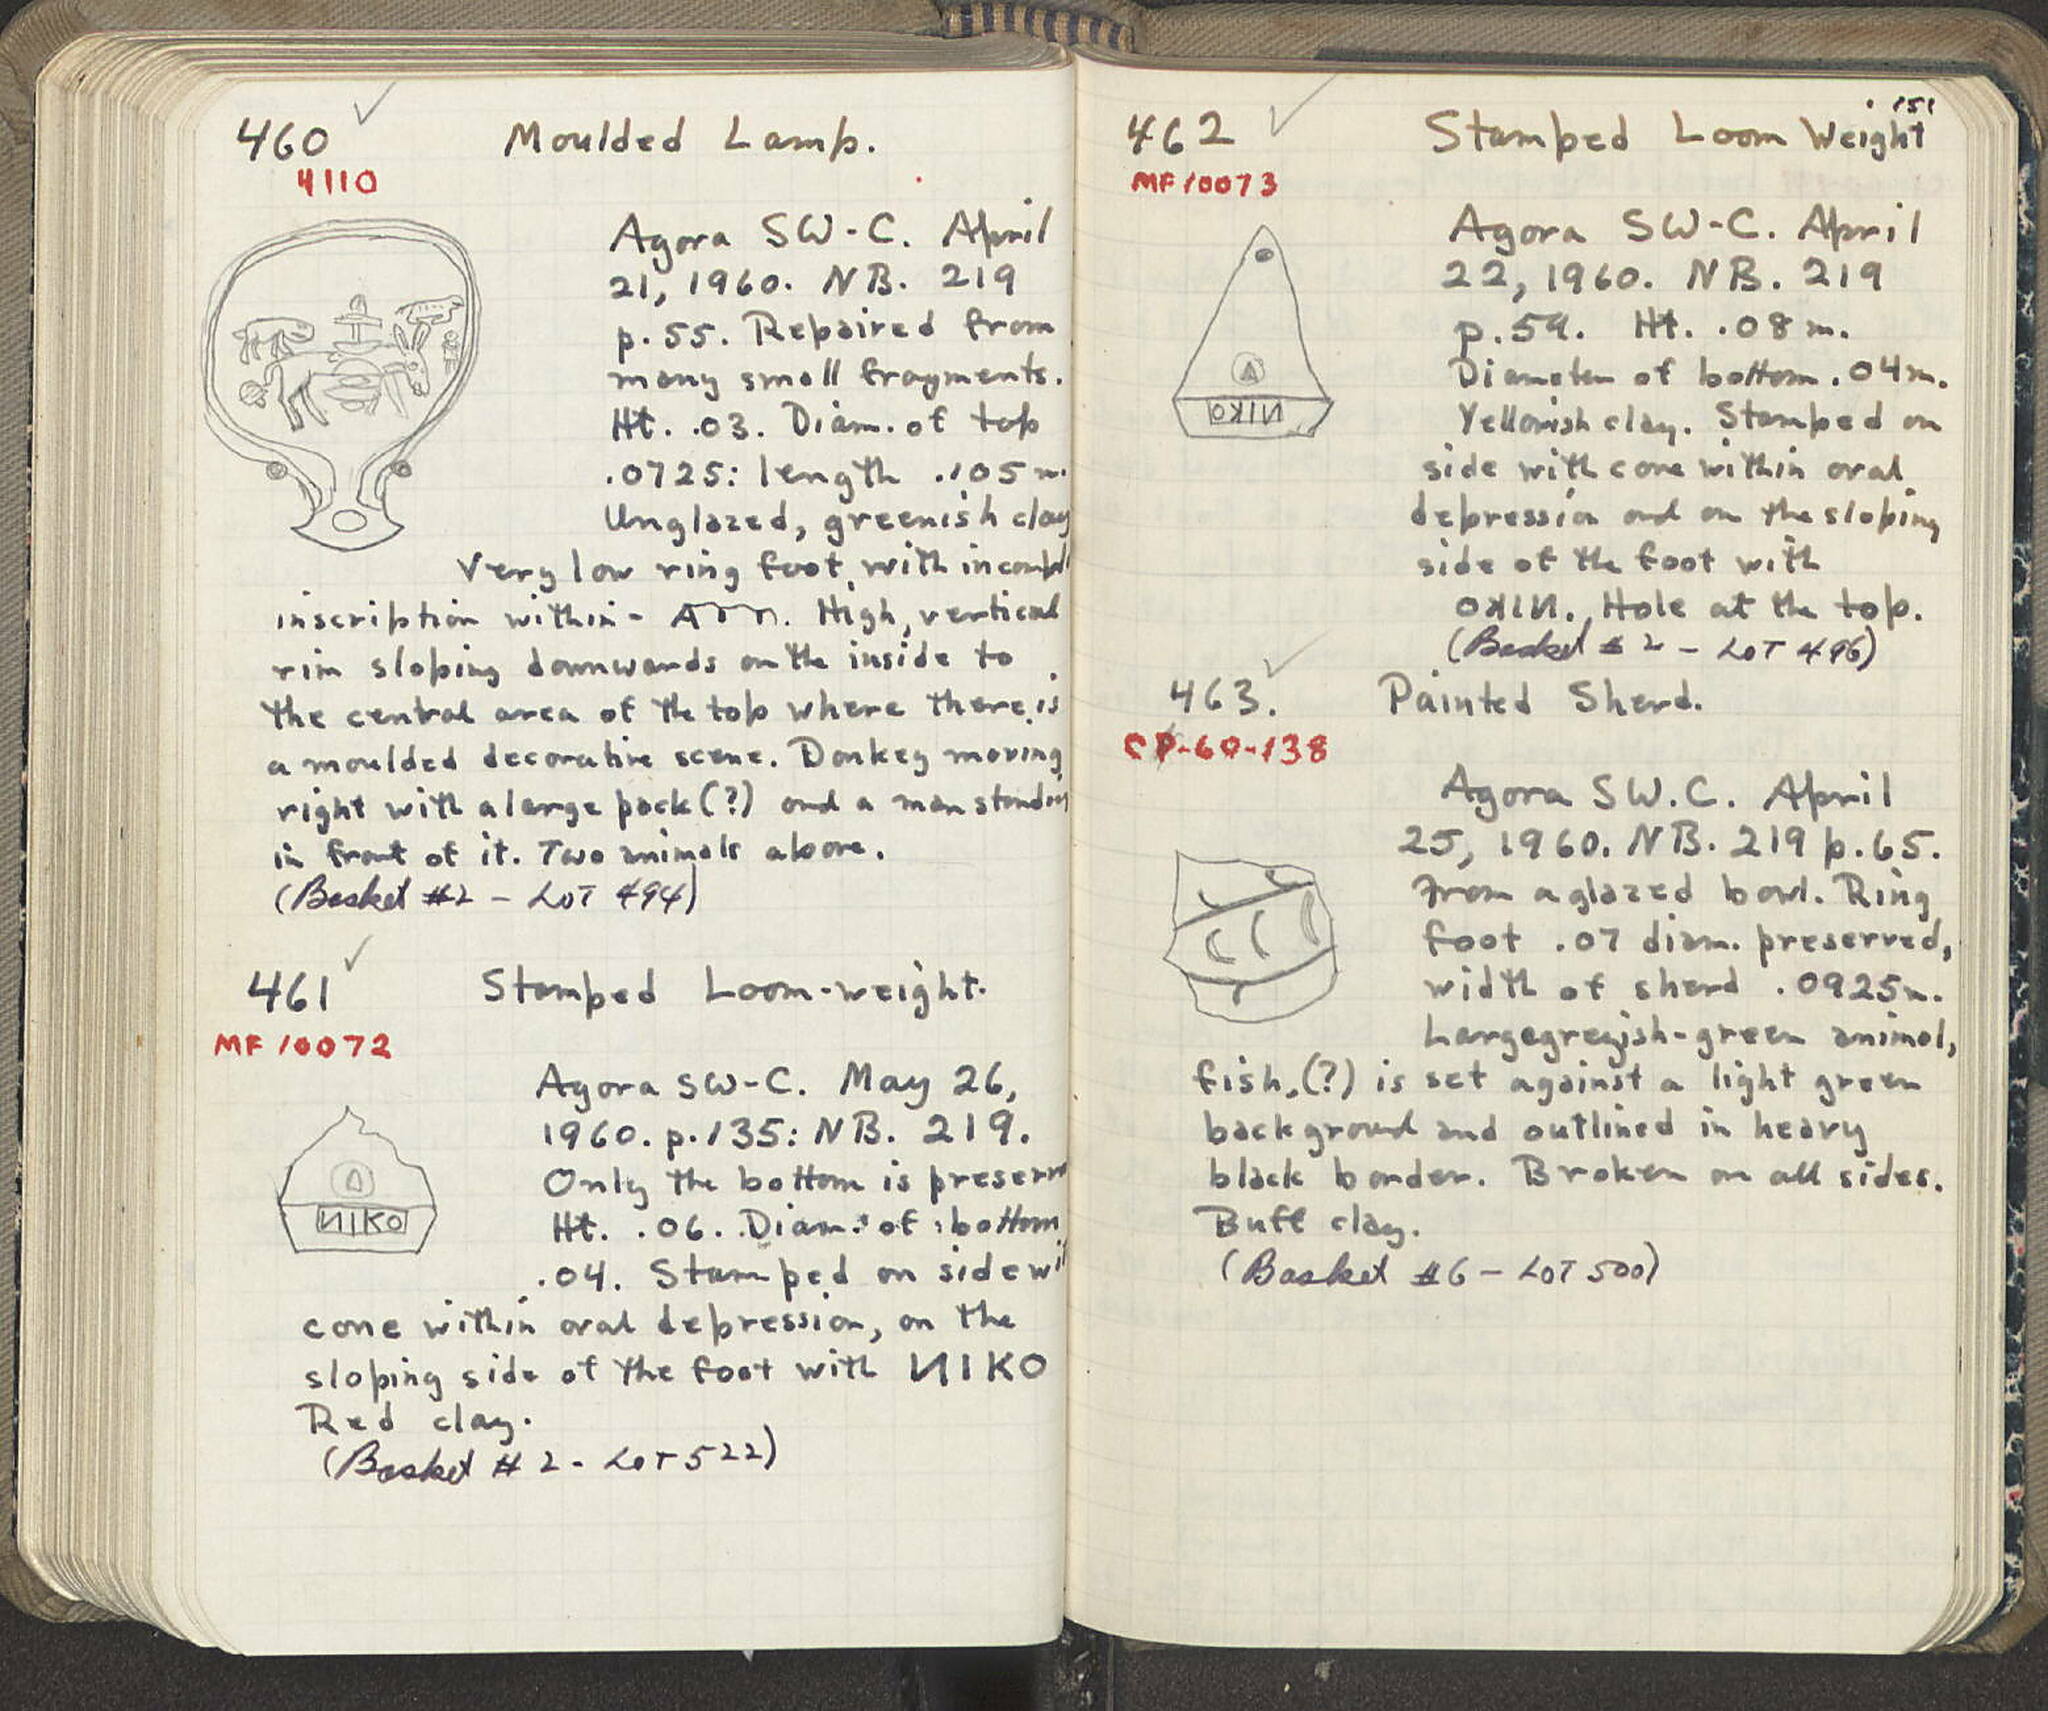 460 Moulded Lamp.
4110
Agora SW-C. April
21, 1960. NB. 219
p. 55. Repaired from
many small fragments.
Ht. .03. Diam. of top
.0725: length .105 m.
Unglazed, greenish clay
Very low ring foot, with
inscription within - High, vertical
rim sloping downwards on the inside to
the central area of the top where there is
a moulded decorative scene. Donkey moving
right with a large pack (?) and a man standing
in front of it. Two animals above.
(Basket #2 - LOT 494)
461 Stamped Loom-weight.
MF 10072
Agora SW-C. May 26,
1960. p. 135: NB. 219.
Only the bottom is
Ht. .06. Diam. of bottom
.04. Stamped on side
cone within oval depression, on the
sloping side of the foot with ИIKO
Red clay.
(Basket #2 - LOT 522)
Δ
ИIKO
151
462 Stamped Loom Weight
MF 10073
Agora SW-C. April
22, 1960. NB. 219
p. 59. Ht. .08 m.
Diameter of bottom .04 m.
Yellowish clay. Stamped on
side with cone within oval
depression and on the sloping
side of the foot with
OꓘIИ. Hole at the top.
(Basket #2 - LOT 496)
Δ
OꓘIИ
463. Painted Sherd.
CP-60-138
Agora SW.C. April
25, 1960. NB. 219 p. 65.
From a glazed bowl. Ring
foot .07 diam. preserved,
width of sherd .0925 m.
Large greyish-green animal,
fish, (?) is set against a light green
background and outlined in heavy
black border. Broken on all sides.
Buff clay.
(Basket #6 - LOT 500)